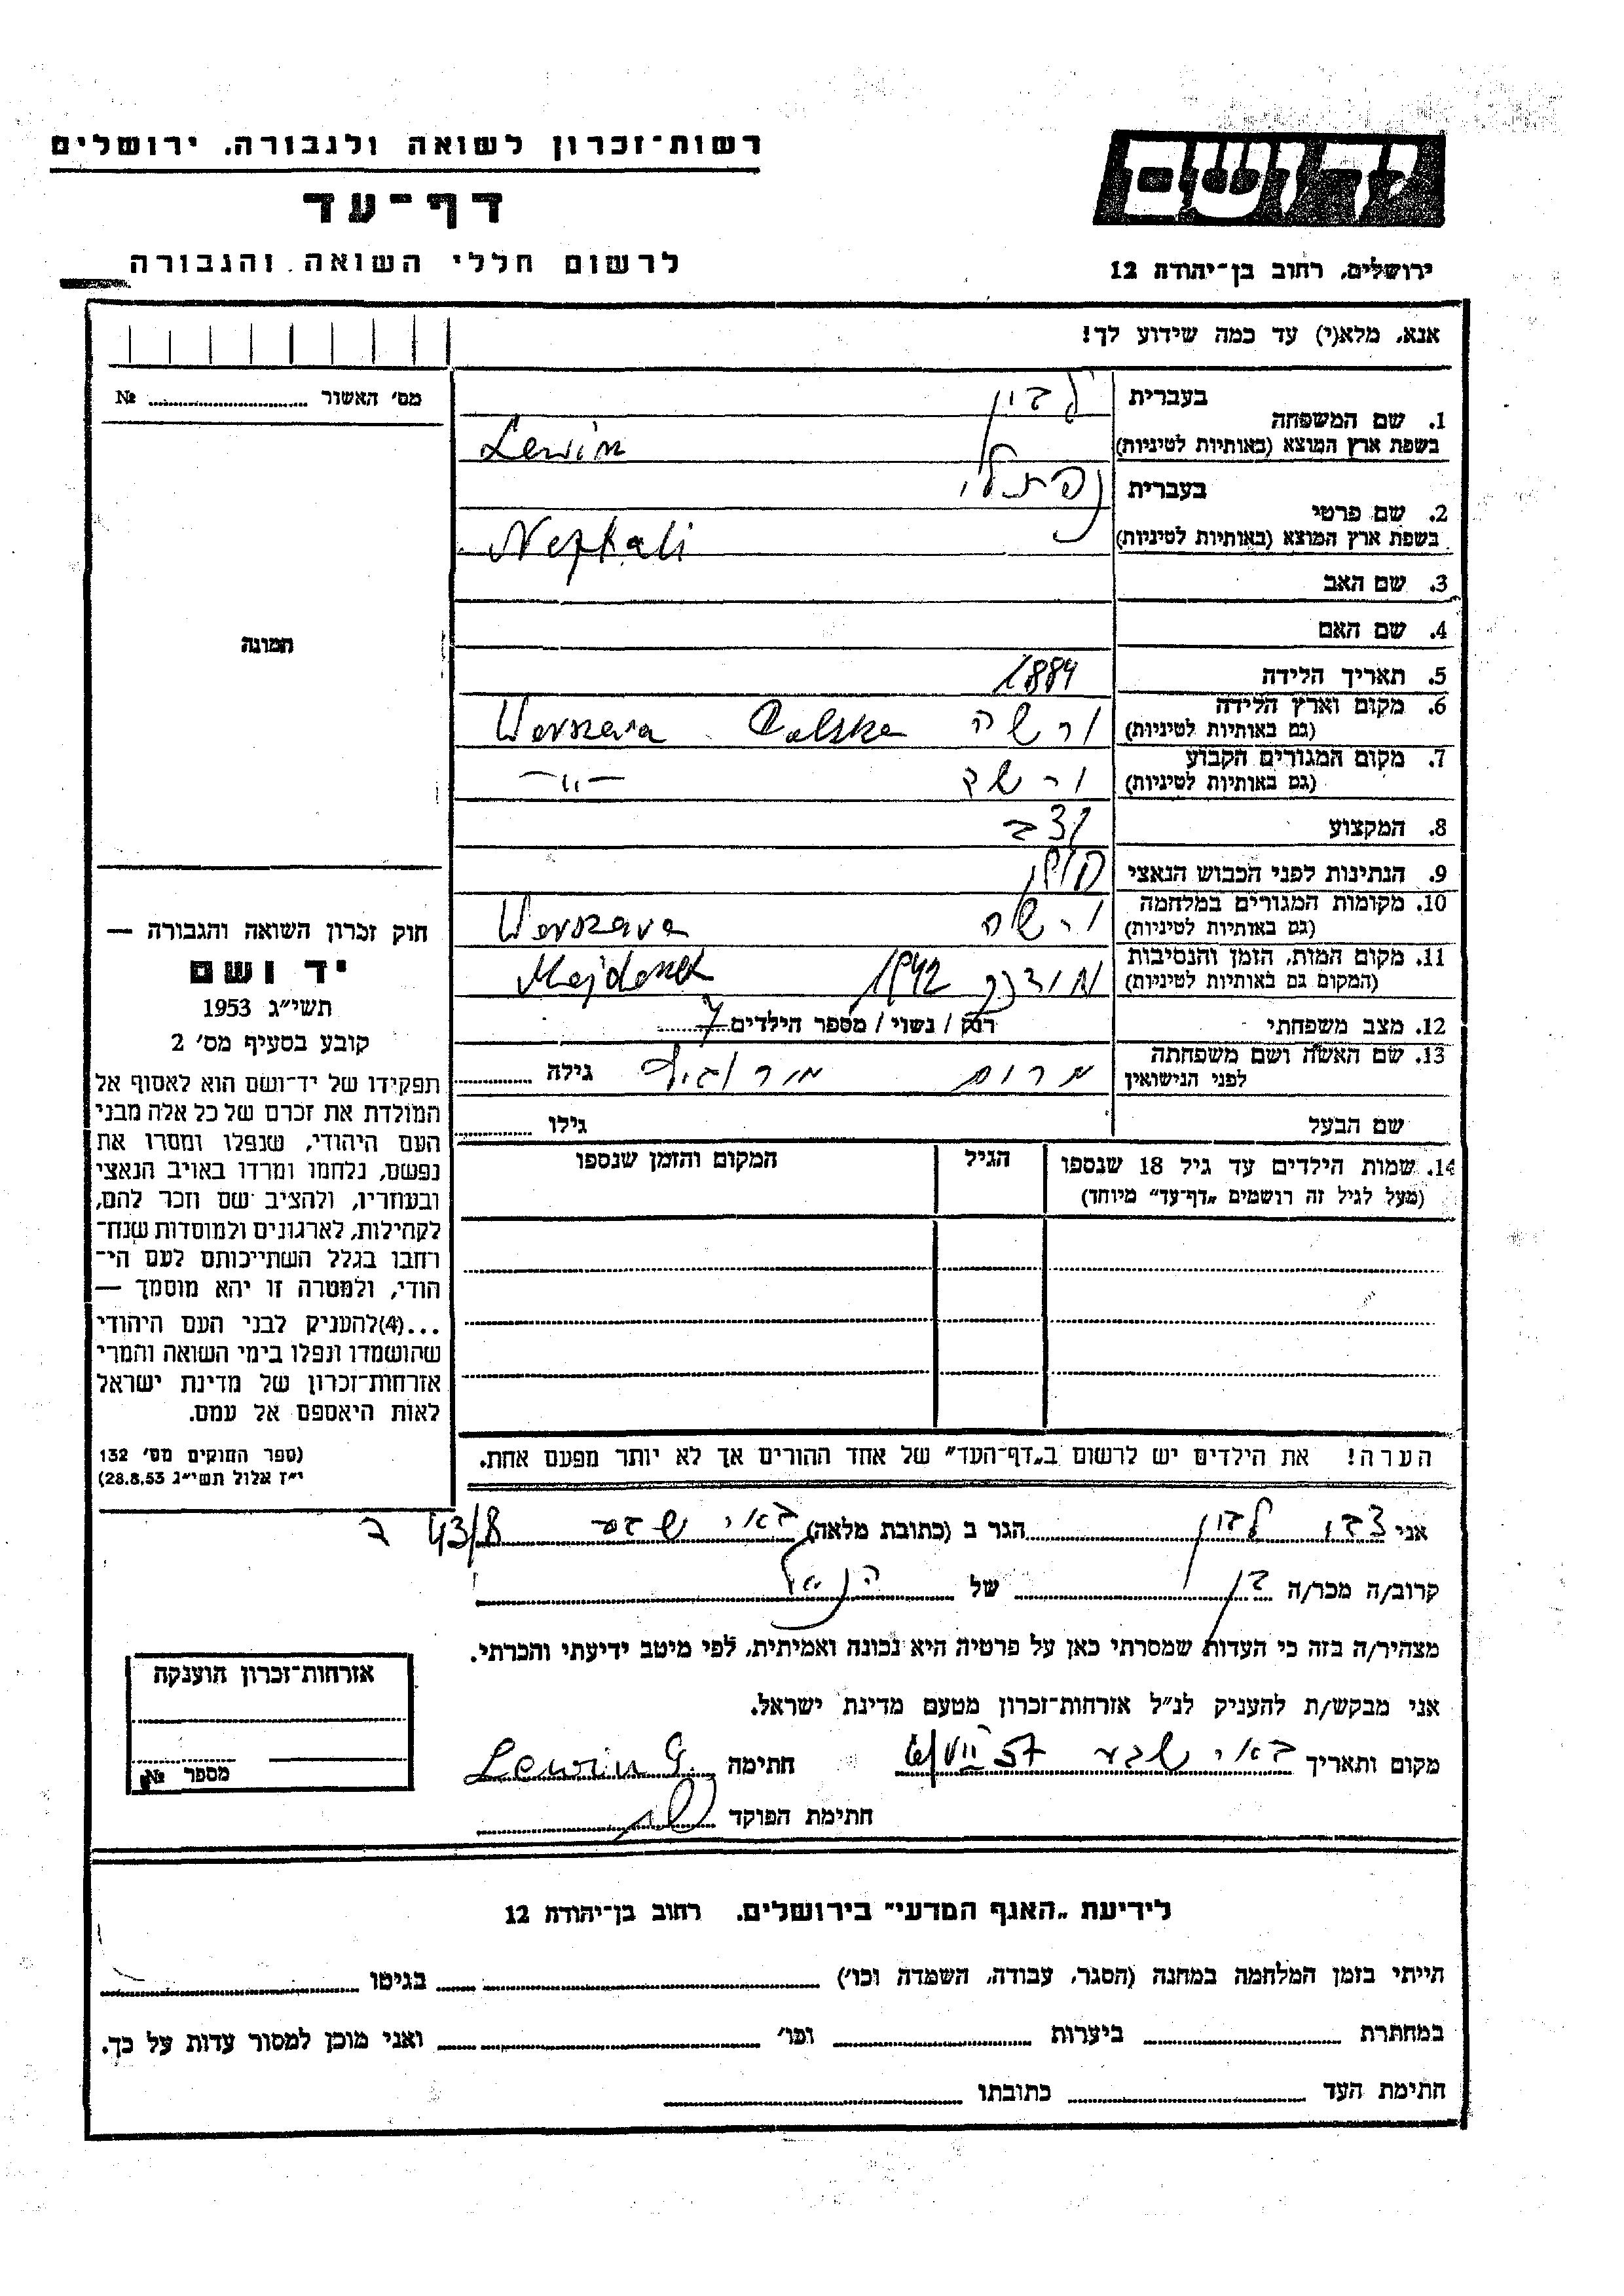 רשות־זכרון לשואה ולגבורה, ירושלים
דף־עד
לרשום חללי השואה והגבורה
יד ושם
ירושלים, רחוב בן־יהודה 12
אנא, מלא(י) עד כמה שידוע לך!
מס׳ האשור № 
תמונה
1. שם המשפחה
בעברית לוין
בשפת ארץ המוצא (באותיות לטיניות) Lewin
2. שם פרטי
בעברית נפתלי
בשפת ארץ המוצא (באותיות לטיניות) Neftali
3. שם האב
4. שם האם
5. תאריך הלידה 1884
6. מקום וארץ הלידה ורשה Polska
(גם באותיות לטיניות)
7. מקום המגורים הקבוע
(גם באותיות לטיניות) —״—
8. המקצוע
9. הנתינות לפני הכבוש הנאצי
10. מקומות המגורים במלחמה ורשה
(גם באותיות לטיניות)
11. מקום המות, הזמן והנסיבות 1942
(המקום גם באותיות לטיניות)
12. מצב משפחתי רוק / נשוי / מספר הילדים 7
13. שם האשה ושם משפחתה
לפני הנישואין גילה
שם הבעל גילו
14. שמות הילדים עד גיל 18 שנספו הגיל המקום והזמן שנספו
(מעל לגיל זה רושמים „דף־עד” מיוחד)
הערה! את הילדים יש לרשום ב„דף־העד” של אחד ההורים אך לא יותר מפעם אחת.
חוק זכרון השואה והגבורה —
יד ושם
תשי״ג 1953
קובע בסעיף מס׳ 2
תפקידו של יד־ושם הוא לאסוף אל
המולדת את זכרם של כל אלה מבני
העם היהודי, שנפלו ומסרו את
נפשם, נלחמו ומרדו באויב הנאצי
ובעוזריו, ולהציב שם וזכר להם,
לקהילות, לארגונים ולמוסדות שנח־
רבו בגלל השתייכותם לעם הי־
הודי, ולמטרה זו יהא מוסמך —
...(4)להעניק לבני העם היהודי
שהושמדו ונפלו בימי השואה והמרי
אזרחות־זכרון של מדינת ישראל
לאות היאספם אל עמם.
(ספר החוקים מס׳ 132
י״ז אלול תשי״ג 28.8.53)
אני לוין הגר ב (כתובת מלאה) באר שבע 43/8 ד
קרוב/ה מכר/ה בן של הנ״ל
מצהיר/ה בזה כי העדות שמסרתי כאן על פרטיה היא נכונה ואמיתית, לפי מיטב ידיעתי והכרתי.
אני מבקש/ת להעניק לנ״ל אזרחות־זכרון מטעם מדינת ישראל.
מקום ותאריך באר שבע 6/VII 57 חתימה Lewin G.
חתימת הפוקד
אזרחות־זכרון הוענקה
מספר №
לידיעת „האגף המדעי” בירושלים, רחוב בן־יהודה 12
הייתי בזמן המלחמה במחנה (הסגר, עבודה, השמדה וכו׳) בגיטו
במחתרת ביערות וכו׳ ואני מוכן למסור עדות על כך.
חתימת העד כתובתו